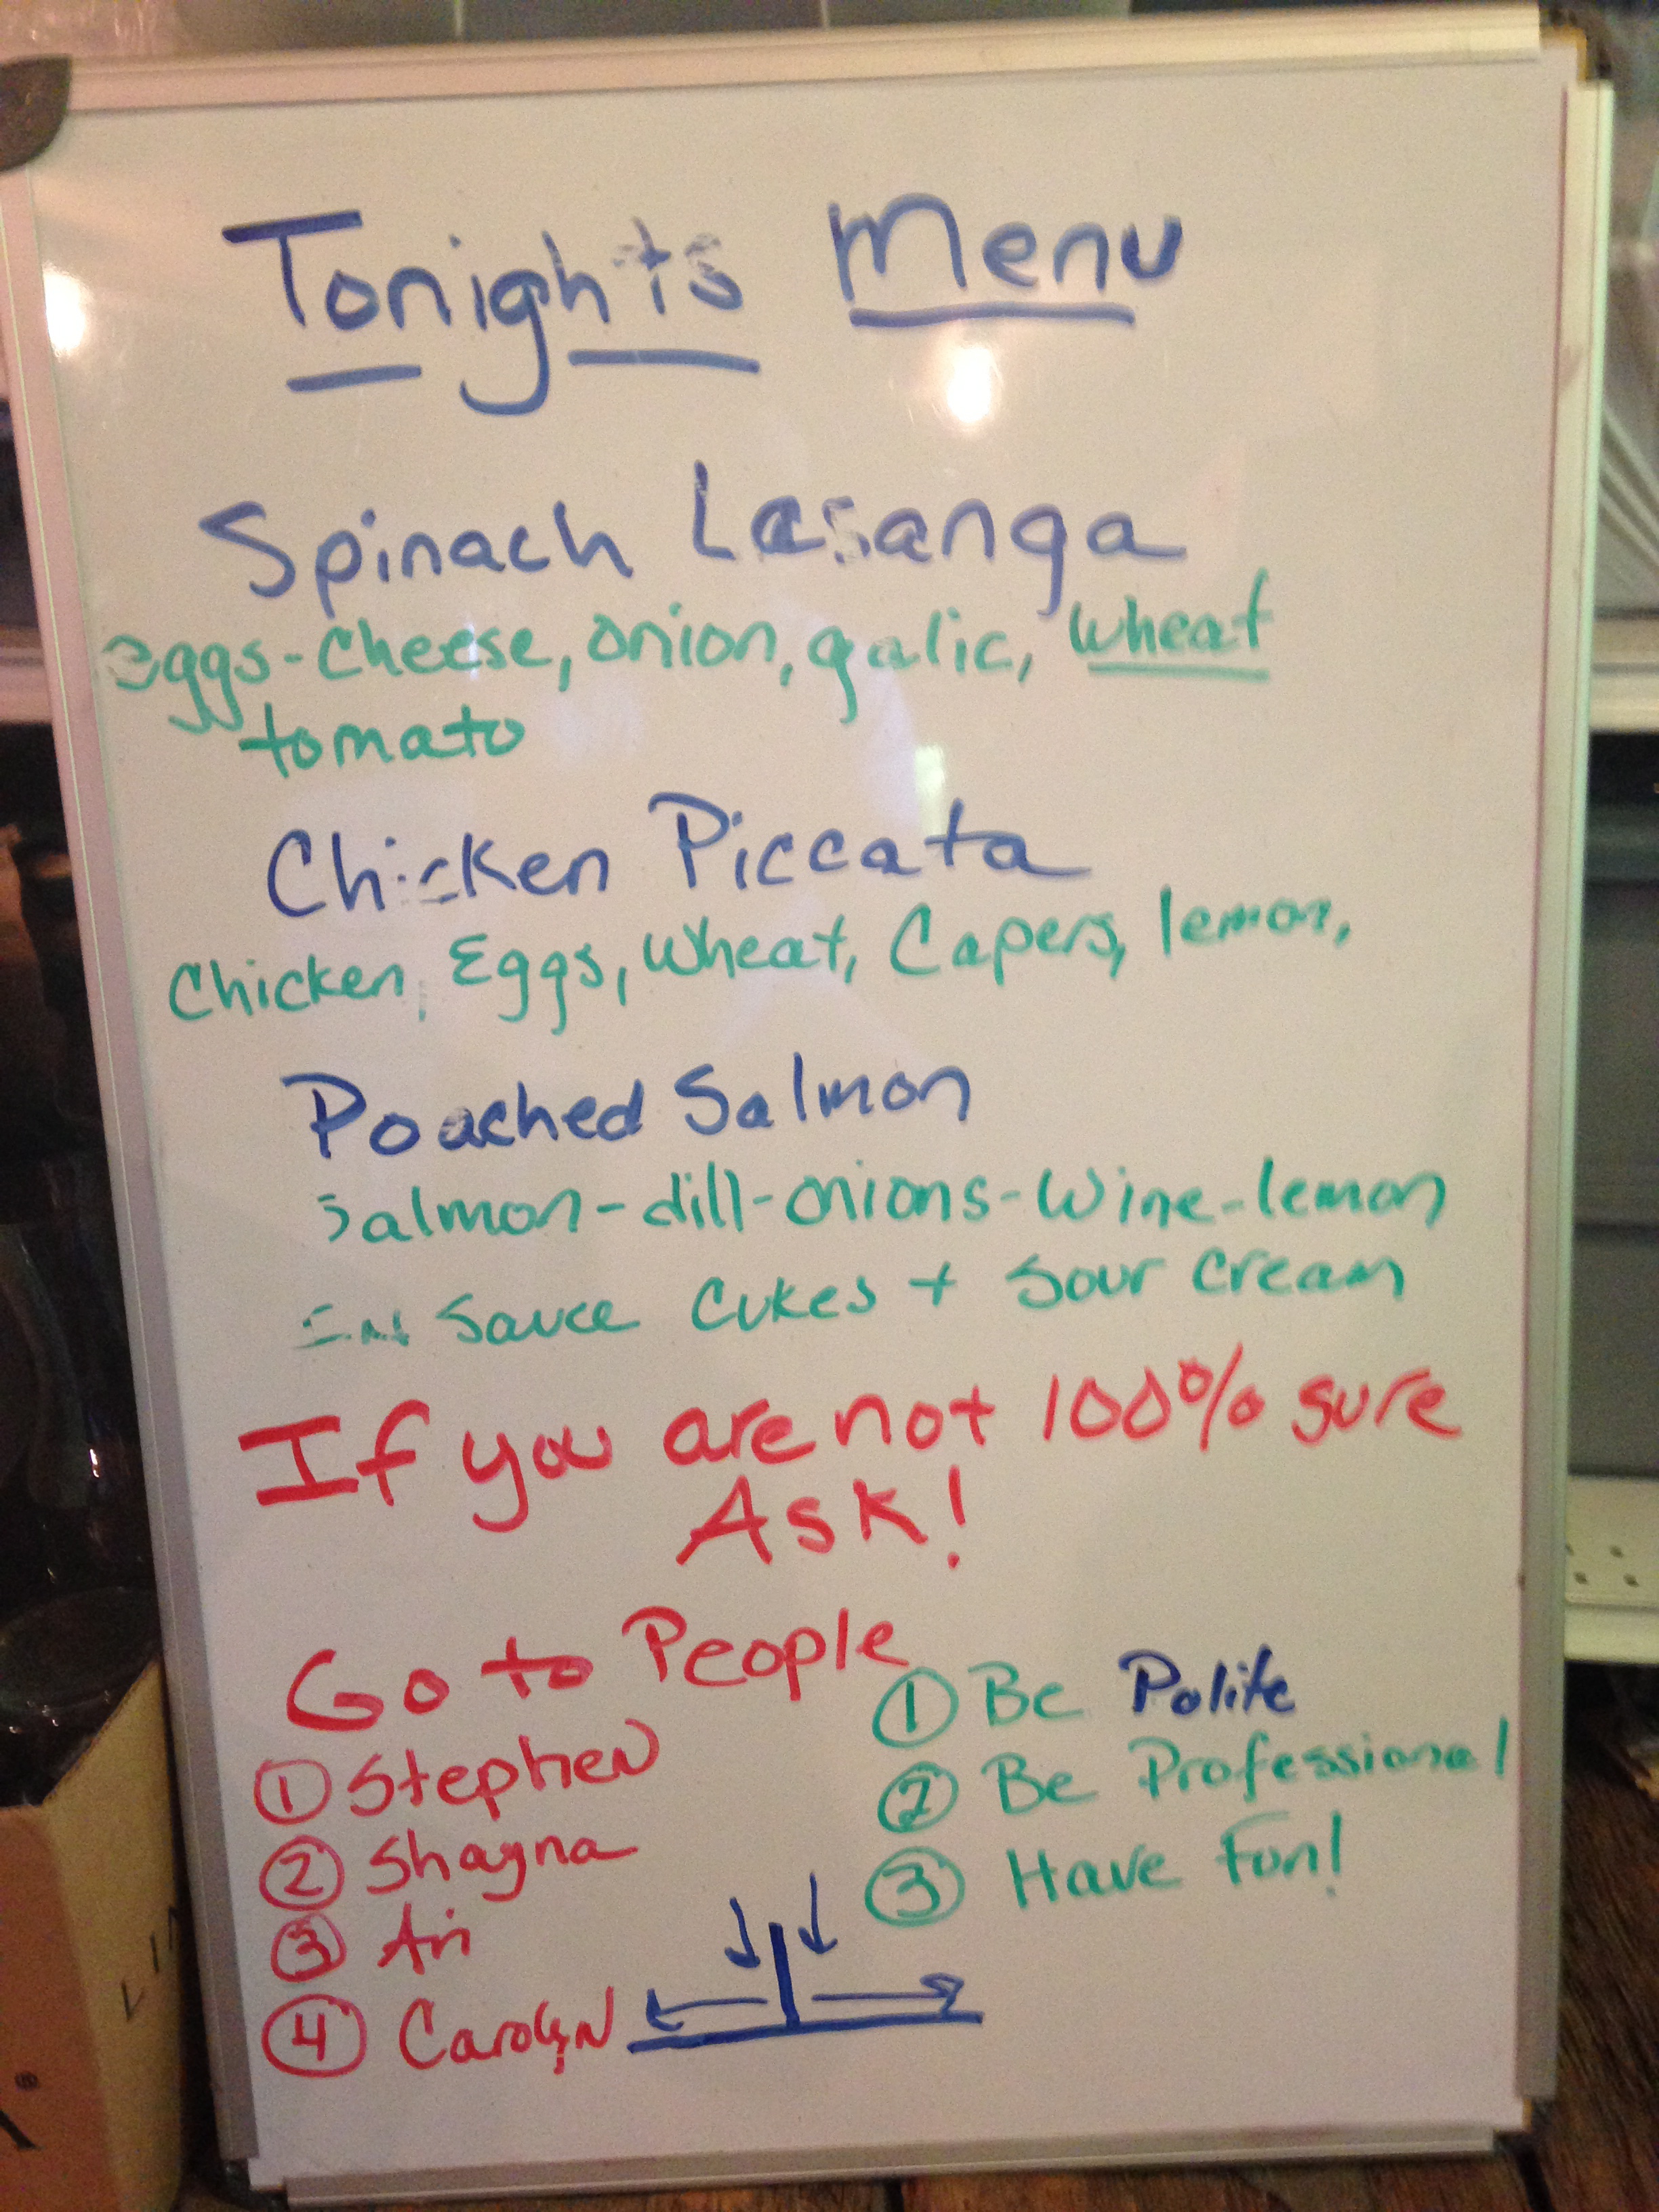 Tonights Menu
Spinach Lasanga
eggs-cheese, onion, galic, wheat
tomato
Chicken Piccata
Chicken, Eggs, Wheat, Capers, lemon,
Poached Salmon
Salmon-dill-onions-Wine-lemon
Sauce Cukes + Sour Cream
If you are not 100% sure
Ask!
Go to People
1 Stephen
2 Shayna
3 Ari
4 Carolyn
1 Be Polite
2 Be Professional
3 Have Fun!